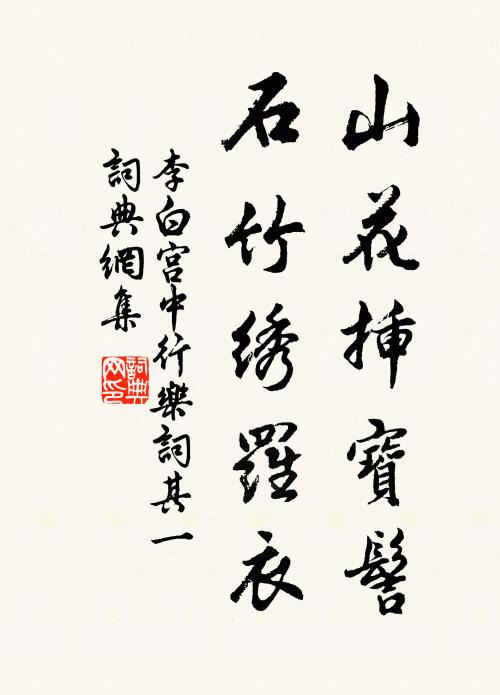 山花挿寶髻
石竹绣羅衣
李白宫中行樂詞其一
詞典網集
詞典网印